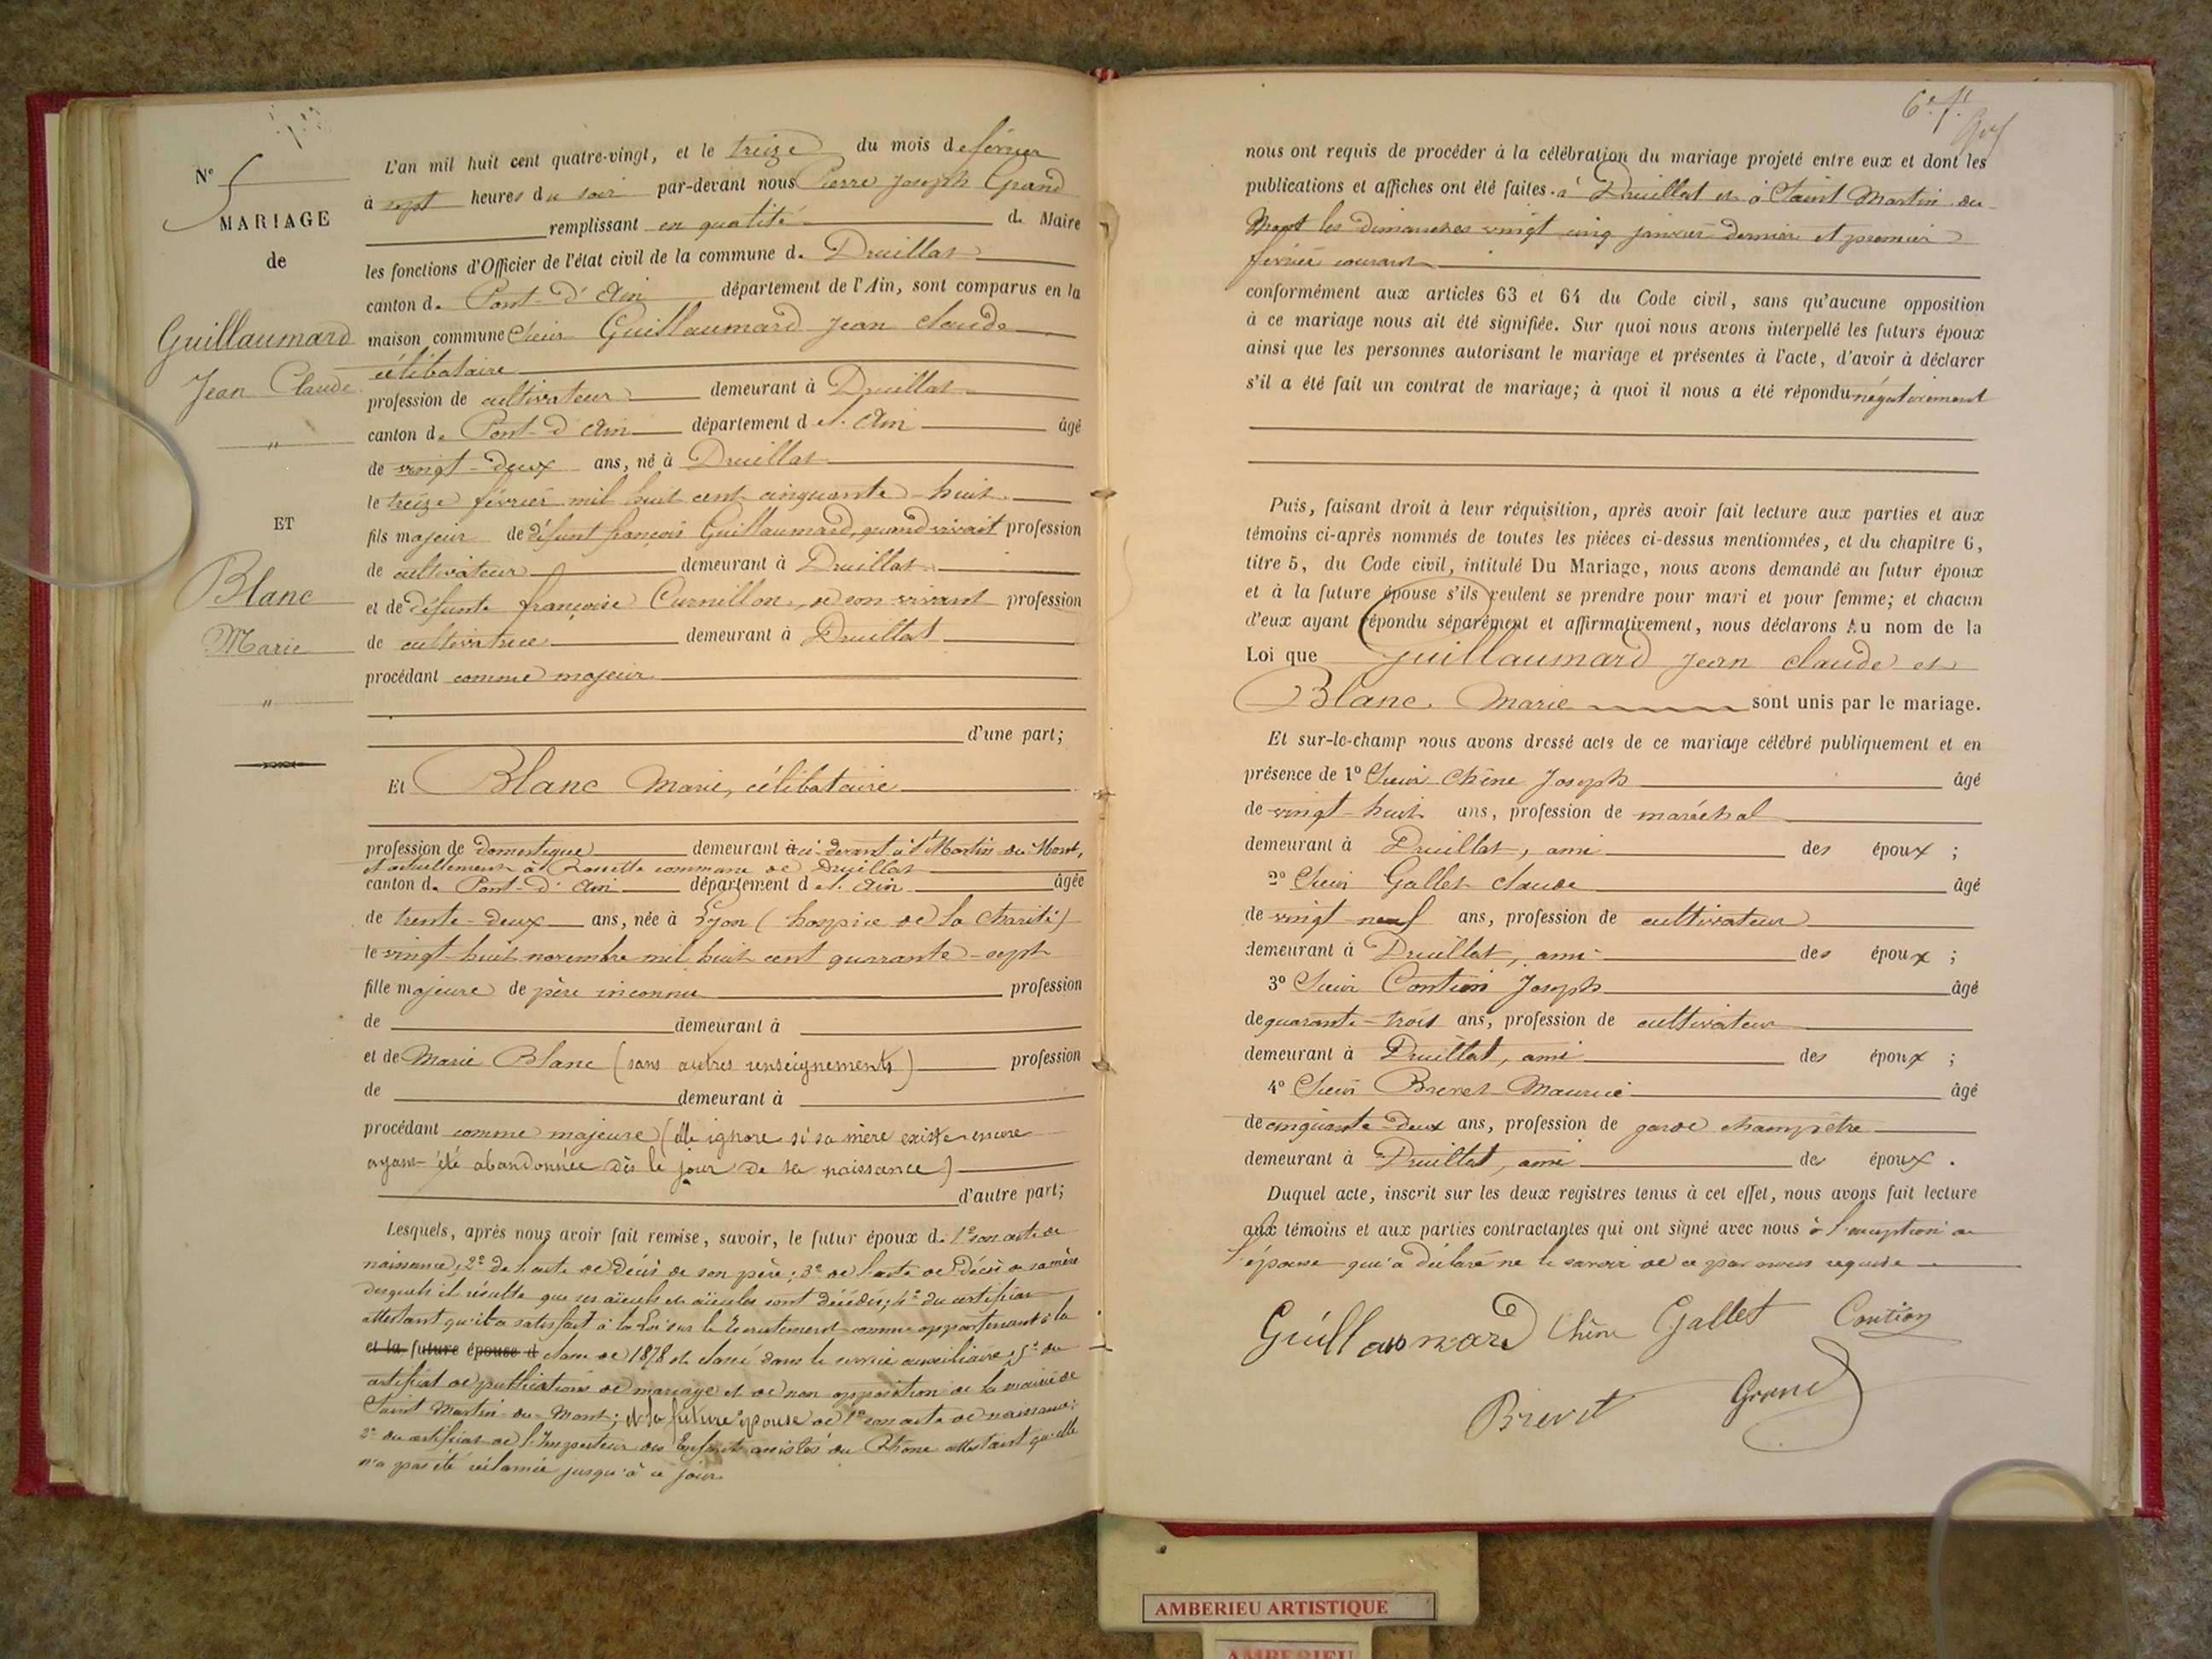 N° 5
MARIAGE
de
Guillaumard
Jean Claude
"
ET
Blanc
Marie
"
L'an mil huit cent quatre-vingt, et le treize du mois de février
à sept heures du soir par-devant nous Pierre Joseph Grand
remplissant en qualité de Maire
les fonctions d'Officier de l'état civil de la commune de Druillat
canton de Pont-d'Ain département de l'Ain, sont comparus en la
maison commune Sieur Guillaumard Jean Claude
célibataire
profession de cultivateur demeurant à Druillat
canton de Pont-d'Ain département de l'Ain âgé
de vingt-deux ans, né à Druillat
le treize février mil huit cent cinquante-huit
fils majeur de défunt françois Guillaumard, quand vivait profession
de cultivateur demeurant à Druillat
et de défunte françoise Curnillon, de son vivant profession
de cultivatrice demeurant à Druillat
procédant comme majeur
d'une part;
Et Blanc Marie, célibataire
profession de domestique demeurant à ci-devant à St Martin du Mont,
et actuellement à commune de Druillat
canton de Pont-d'Ain département de l'Ain âgée
de trente-deux ans, née à Lyon (hospice de la Charité)
le vingt-huit novembre mil huit cent quarante-sept
fille majeure de père inconnu profession
de demeurant à
et de Marie Blanc (sans autres renseignements) profession
de demeurant à
procédant comme majeure (elle ignore si sa mère existe encore
ayant été abandonnée dès le jour de sa naissance)
d'autre part;
Lesquels, après nous avoir fait remise, savoir, le futur époux de 1° son acte de
naissance; 2° de l'acte de décès de son père; 3° de l'acte de décès de sa mère
desquels il résulte que ses aïeuls et aïeules sont décédés; 4° du certificat
attestant qu'il a satisfait à la Loi sur le Recrutement comme appartenant à la
et la future épouse d classe de 1878 et classé dans le service auxiliaire; 5° du
certificat de publications de mariage et de non opposition de la mairie de
Saint Martin du Mont; et la future épouse de 1° son acte de naissance;
2° du certificat de l'Inspecteur des Enfants assistés du Rhône attestant qu'elle
n'a pas été réclamée jusqu'à ce jour
6e f.
nous ont requis de procéder à la célébration du mariage projeté entre eux et dont les
publications et affiches ont été faites à Druillat et à Saint Martin du
Mont les dimanches vingt cinq janvier dernier et premier
février courant
conformément aux articles 63 et 64 du Code civil, sans qu'aucune opposition
à ce mariage nous ait été signifiée. Sur quoi nous avons interpellé les futurs époux
ainsi que les personnes autorisant le mariage et présentes à l'acte, d'avoir à déclarer
s'il a été fait un contrat de mariage; à quoi il nous a été répondu négativement
Puis, faisant droit à leur réquisition, après avoir fait lecture aux parties et aux
témoins ci-après nommés de toutes les pièces ci-dessus mentionnées, et du chapitre 6,
titre 5, du Code civil, intitulé Du Mariage, nous avons demandé au futur époux
et à la future épouse s'ils veulent se prendre pour mari et pour femme; et chacun
d'eux ayant répondu séparément et affirmativement, nous déclarons Au nom de la
Loi que Guillaumard Jean Claude et
Blanc Marie sont unis par le mariage.
Et sur-le-champ nous avons dressé acte de ce mariage célébré publiquement et en
présence de 1° Sieur Chêne Joseph âgé
de vingt-huit ans, profession de maréchal
demeurant à Druillat, ami des époux ;
2° Sieur Gallet Claude âgé
de vingt neuf ans, profession de cultivateur
demeurant à Druillat, ami des époux ;
3° Sieur Contion Joseph âgé
de quarante-trois ans, profession de cultivateur
demeurant à Druillat, ami des époux ;
4° Sieur Brevet Maurice âgé
de cinquante-deux ans, profession de garde champêtre
demeurant à Druillat, ami des époux .
Duquel acte, inscrit sur les deux registres tenus à cet effet, nous avons fait lecture
aux témoins et aux parties contractantes qui ont signé avec nous à l'exception de
l'épouse qui a déclaré ne le savoir de ce par nous requise
Guillaumard Chêne Gallet Contion
Brevet Grand
AMBERIEU ARTISTIQUE
AMBERIEU